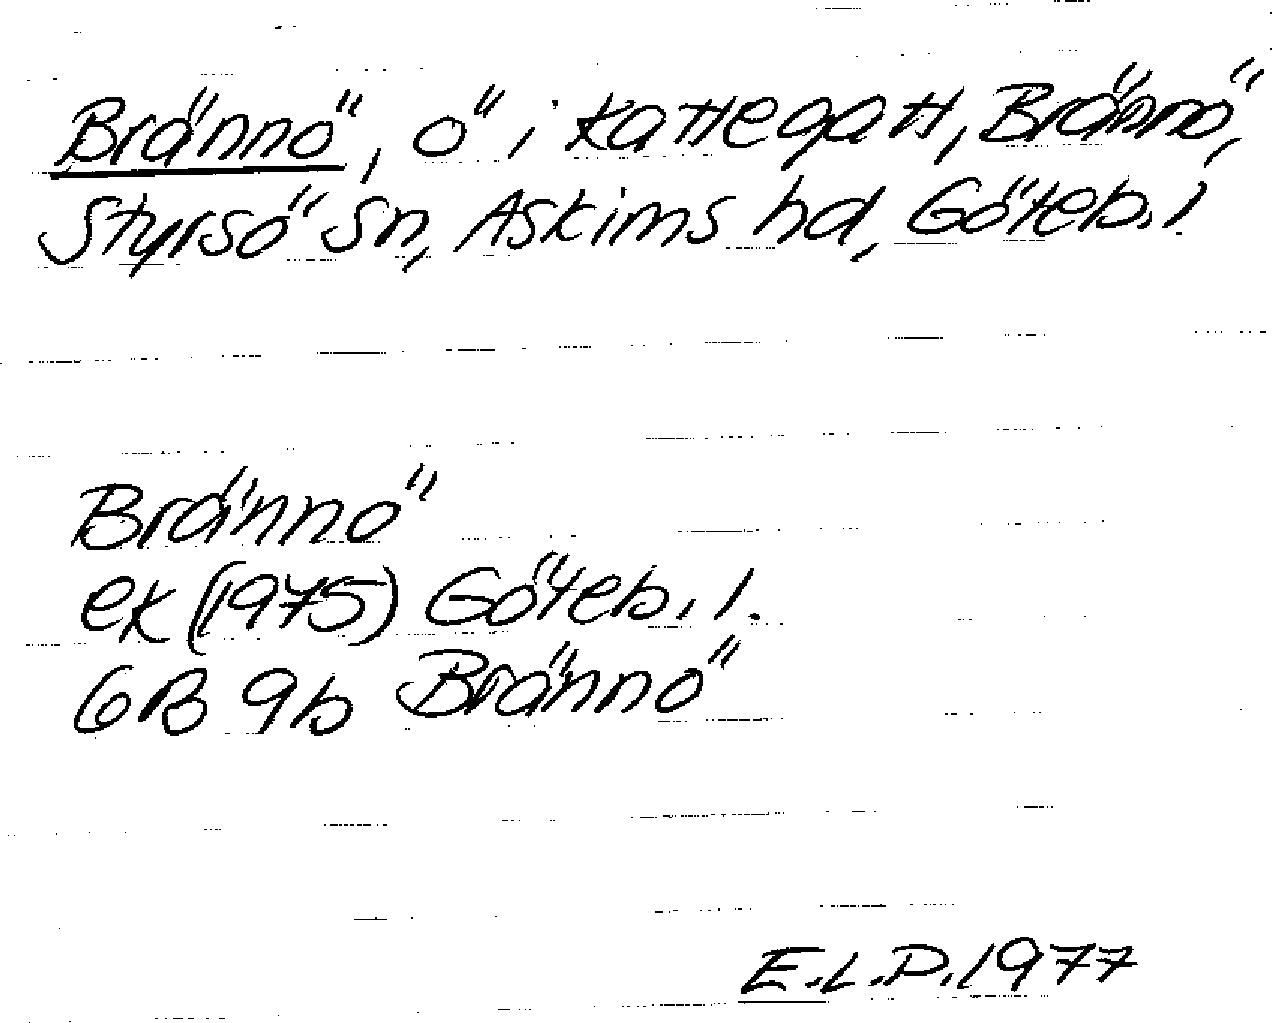 Brännö, ö i Kattegatt, Brännö,
Styrsö sn, Askims hd, Göteb. l.
Brännö
ek (1975) Göteb. l.
6B 9b Brännö
E.L.D. 1977